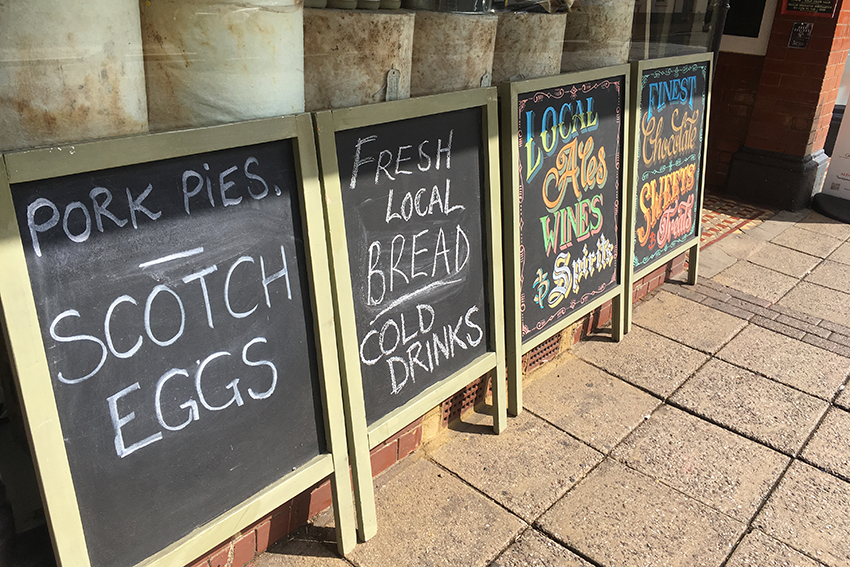 PORK PIES.
SCOTCH
EGGS
FRESH
LOCAL
BREAD
COLD
DRINKS
LOCAL
Ales
WINES
& Spirits
FINEST
Chocolate
SWEETS
& Treats